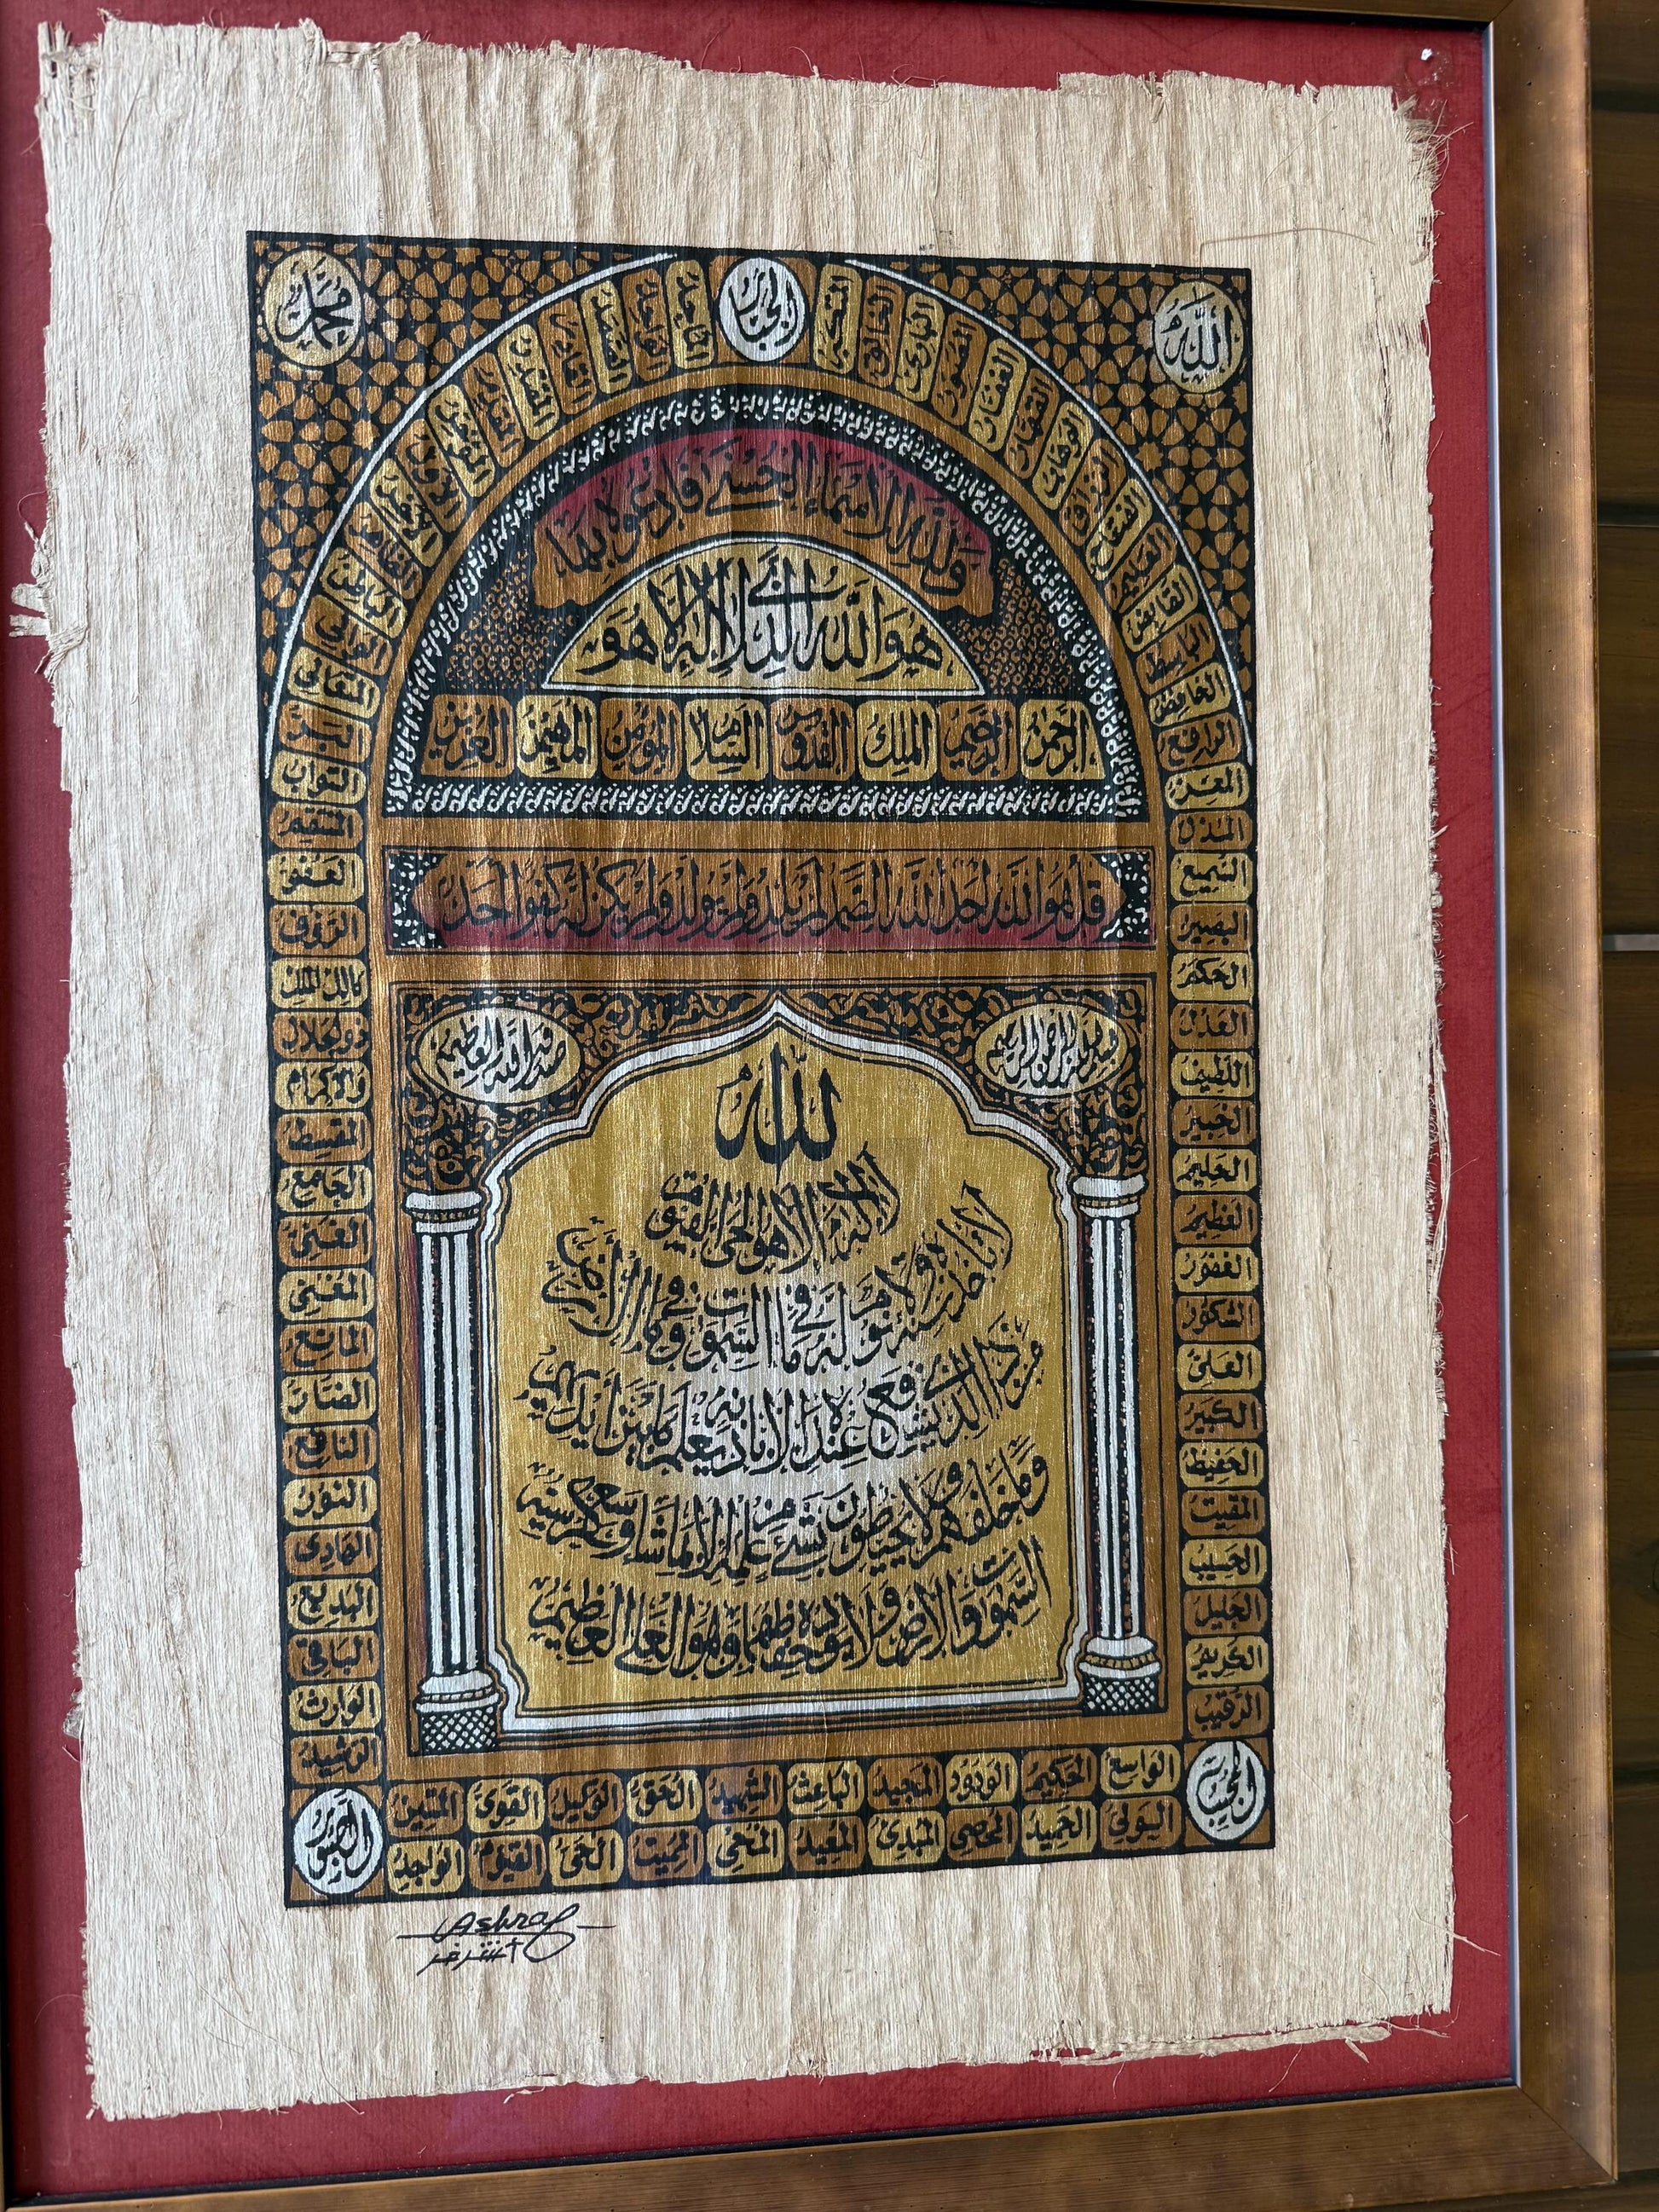 الله
محمد
الجبار
المتكبر
الخالق
البارئ
المصور
الغفار
القهار
الوهاب
الرزاق
الفتاح
العليم
القابض
الباسط
الخافظ
الرافع
المعز
المذل
السميع
البصير
الحكم
العدل
اللطيف
الخبير
الحليم
العظيم
الغفور
الشكور
العلى
الكبير
الحفيظ
المقيت
الحسيب
الجليل
الكريم
الرقيب
المجيب
ولله الاسماء الحسنى فادعوه بها
هو الله الذي لا إله الا هو
الرحمن الرحيم الملك القدوس السلام المؤمن المهيمن العزيز
قل هو الله احد الله الصمد لم يلد ولم يولد ولم يكن له كفوا احد
بسم الله الرحمن الرحيم
صدق الله العظيم
الله
لا اله الا هو الحي القيوم
لا تأخذه سنة ولا نوم له ما في السموات وما في الأرض
من ذا الذي يشفع عنده الا باذنه يعلم ما بين أيديهم
وما خلفهم ولا يحيطون بشيء من علمه الا بما شاء وسع كرسيه
السموات والارض ولا يؤده حفظهما وهو العلي العظيم
الواسع الحكيم الودود المجيد الباعث الشهيد الحق الوكيل القوى المتين
الولي الحميد المحصى المبدئ المعيد المحيي المميت الحي القيوم الواجد
الماجد
الواحد
الصمد
القادر
المقتدر
المقدم
المؤخر
الاول
الآخر
الظاهر
الباطن
الوالى
المتعالى
البر
التواب
المنتقم
العفو
الرؤوف
مالك الملك
ذو الجلال
والاكرام
المقسط
الجامع
الغنى
المغنى
المانع
الضار
النافع
النور
الهادى
البديع
الباقى
الوارث
الرشيد
الصبور
Ashraf
اشرف